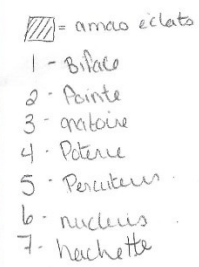 = amas éclats
1 - Biface
2 - Pointe
3 - grattoire
4 - Poterie
5 - Percuteurs.
6 - nucleus
7 - hachette